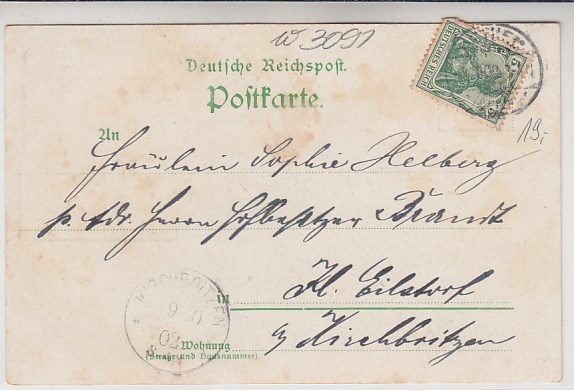 W 3091
Deutsche Reichspost.
Postkarte.
5
DEUTSCHES REICH
5
19,-
An
Fräulein Sophie Helberg
p. Adr. Herrn Hofbesitzer Brandt
in Kl. Eilstorf
b/ Kirchboitzen
KIRCHBOITZEN
9
02
Wohnung
(Straße und Hausnummer).